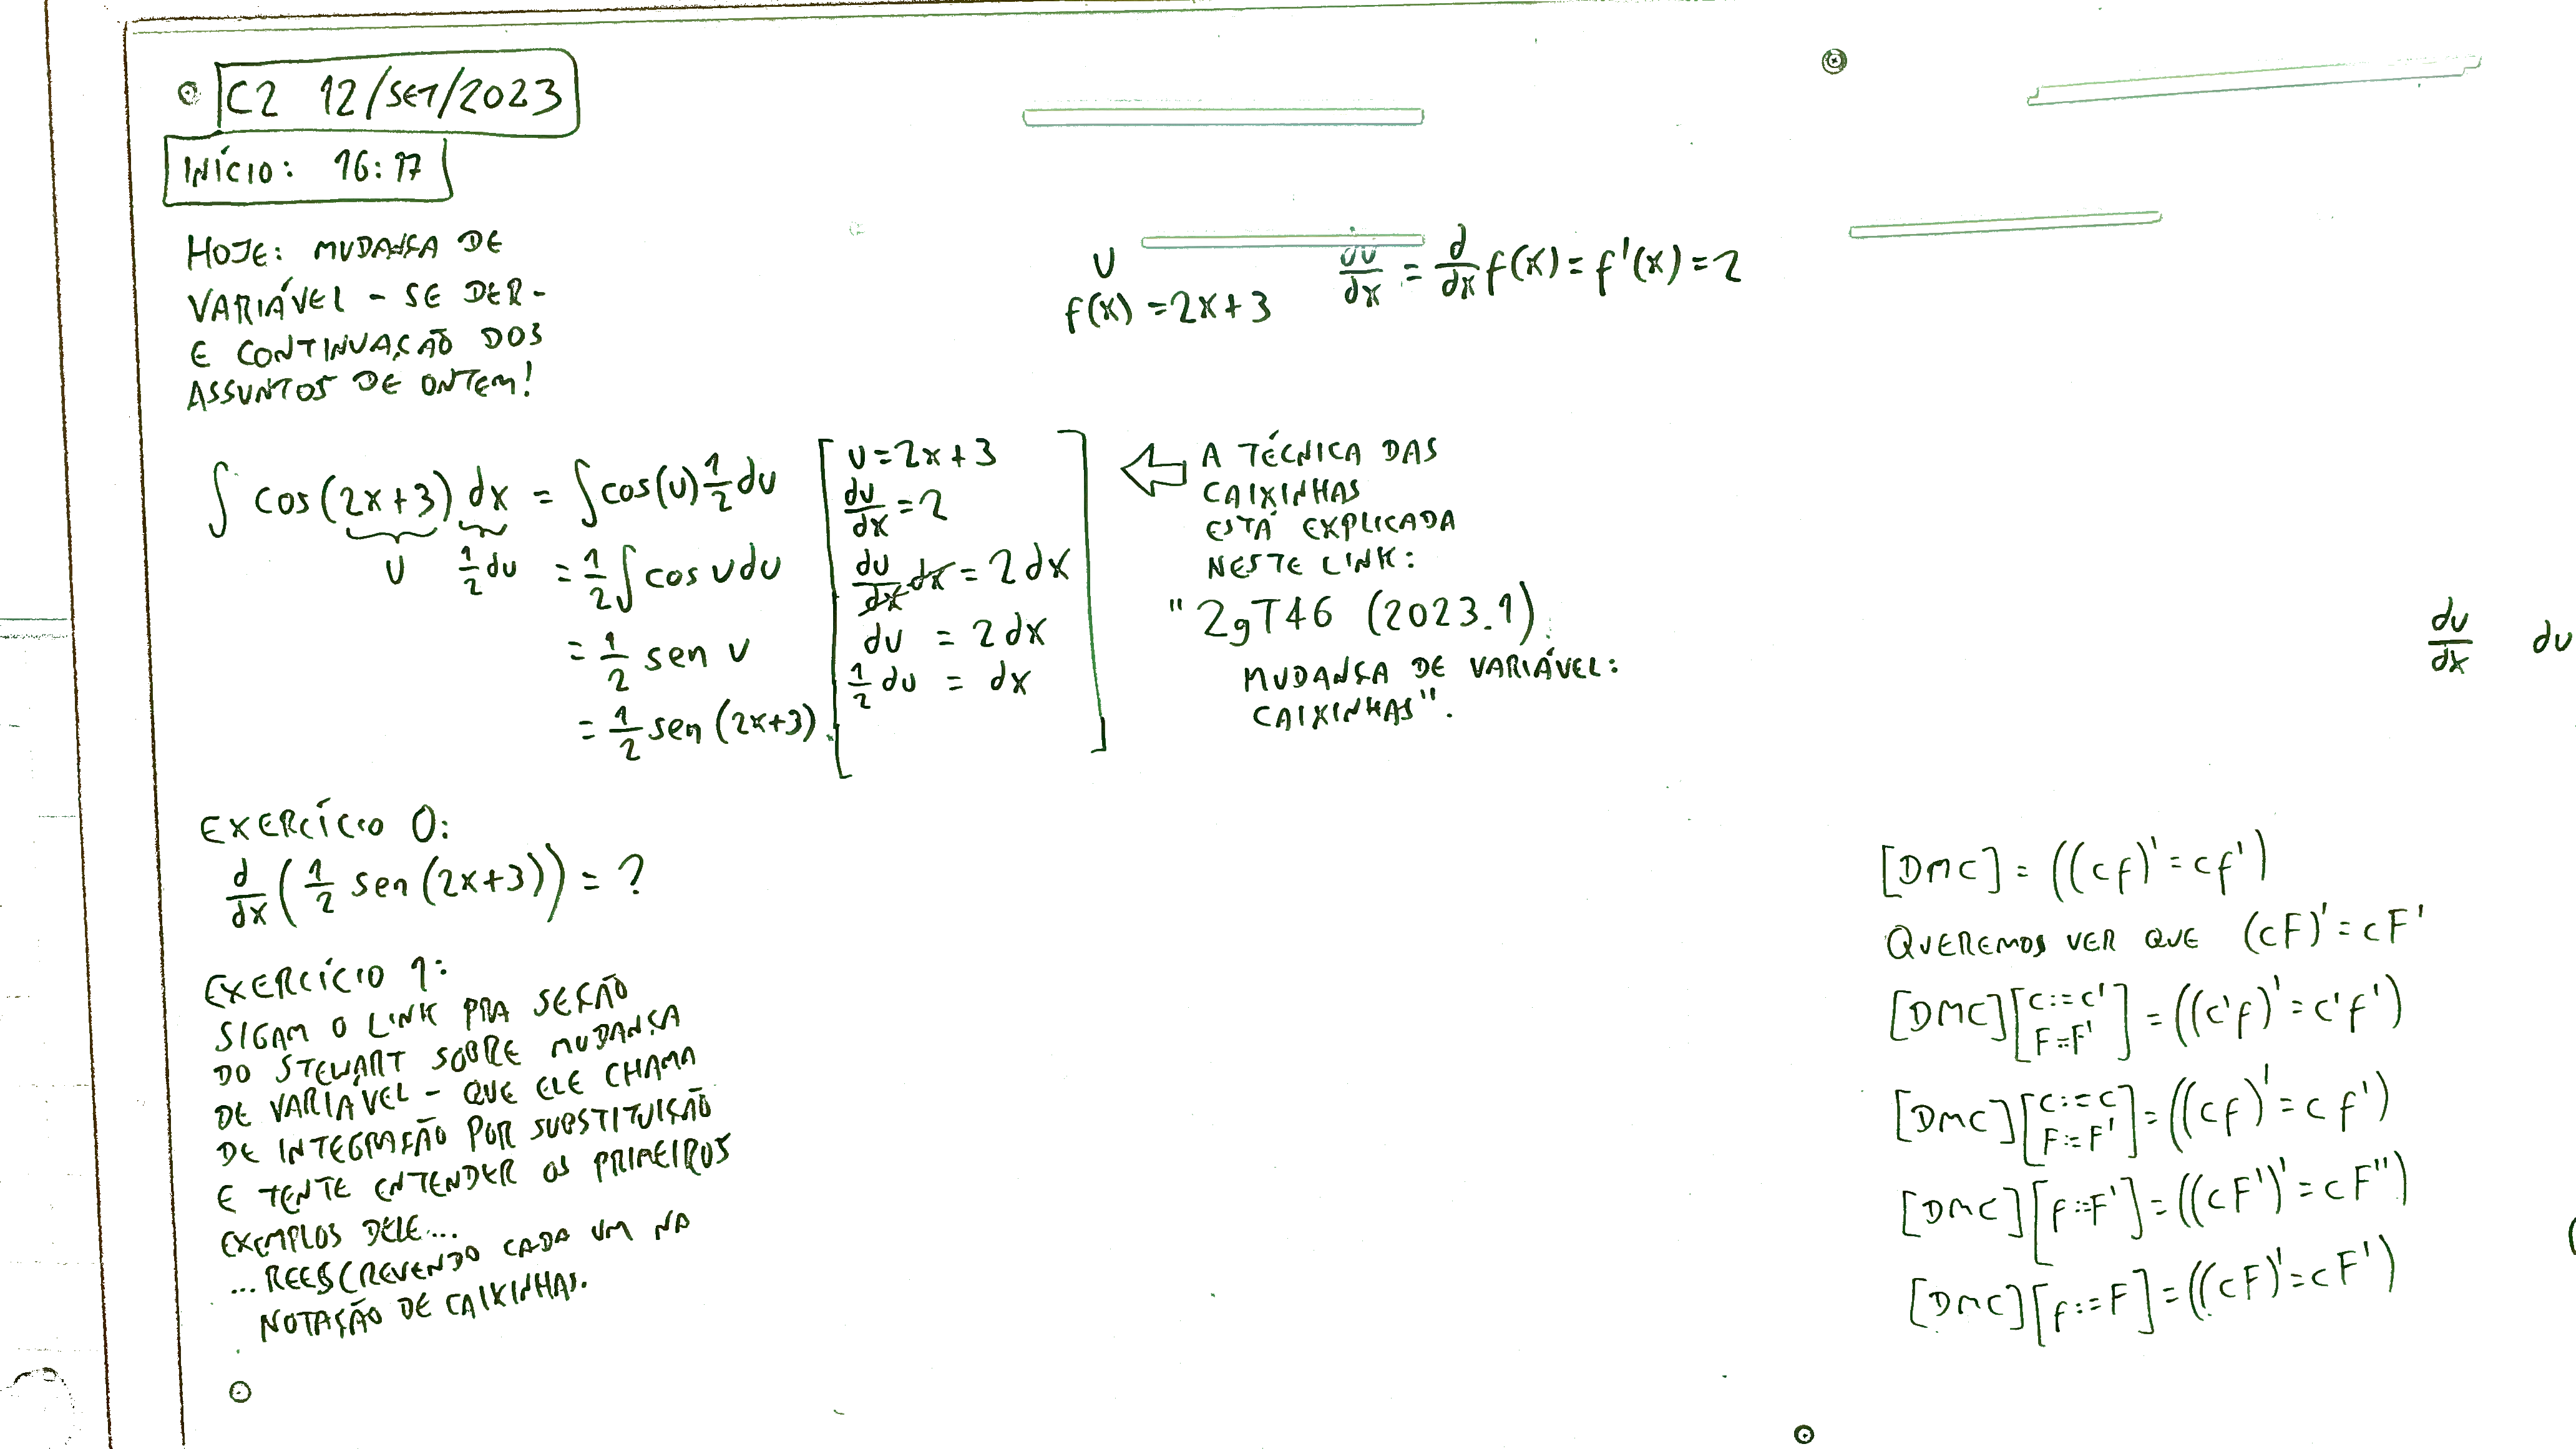 C2 12/SET/2023
INÍCIO: 16:17
HOJE: MUDANÇA DE
VARIÁVEL - SE DER -
E CONTINUAÇÃO DOS
ASSUNTOS DE ONTEM!
U
f(x) = 2x+3
du/dx = d/dx f(x) = f'(x) = 2
∫ cos(2x+3) dx = ∫ cos(u) 1/2 du
u 1/2 du = 1/2 ∫ cos u du
= 1/2 sen u
= 1/2 sen (2x+3).
u = 2x+3
du/dx = 2
du/dx dx = 2dx
du = 2dx
1/2 du = dx
⇦ A TÉCNICA DAS
CAIXINHAS
ESTÁ EXPLICADA
NESTE LINK:
"2gT46 (2023.1)
MUDANÇA DE VARIÁVEL:
CAIXINHAS".
du/dx du
EXERCÍCIO 0:
d/dx (1/2 sen (2x+3)) = ?
EXERCÍCIO 1:
SIGAM O LINK PRA SEÇÃO
DO STEWART SOBRE MUDANÇA
DE VARIÁVEL - QUE ELE CHAMA
DE INTEGRAÇÃO POR SUBSTITUIÇÃO
E TENTE ENTENDER OS PRIMEIROS
EXEMPLOS DELE...
...REESCREVENDO CADA UM NA
NOTAÇÃO DE CAIXINHAS.
[DMC] = ((cf)' = cf')
QUEREMOS VER QUE (cF)' = cF'
[DMC][c:=c' F:=F'] = ((c'f)' = c'f')
[DMC][c:=c F:=F'] = ((cf)' = cf')
[DMC][f:=F'] = ((cF')' = cF'')
[DMC][f:=F] = ((cF)' = cF')